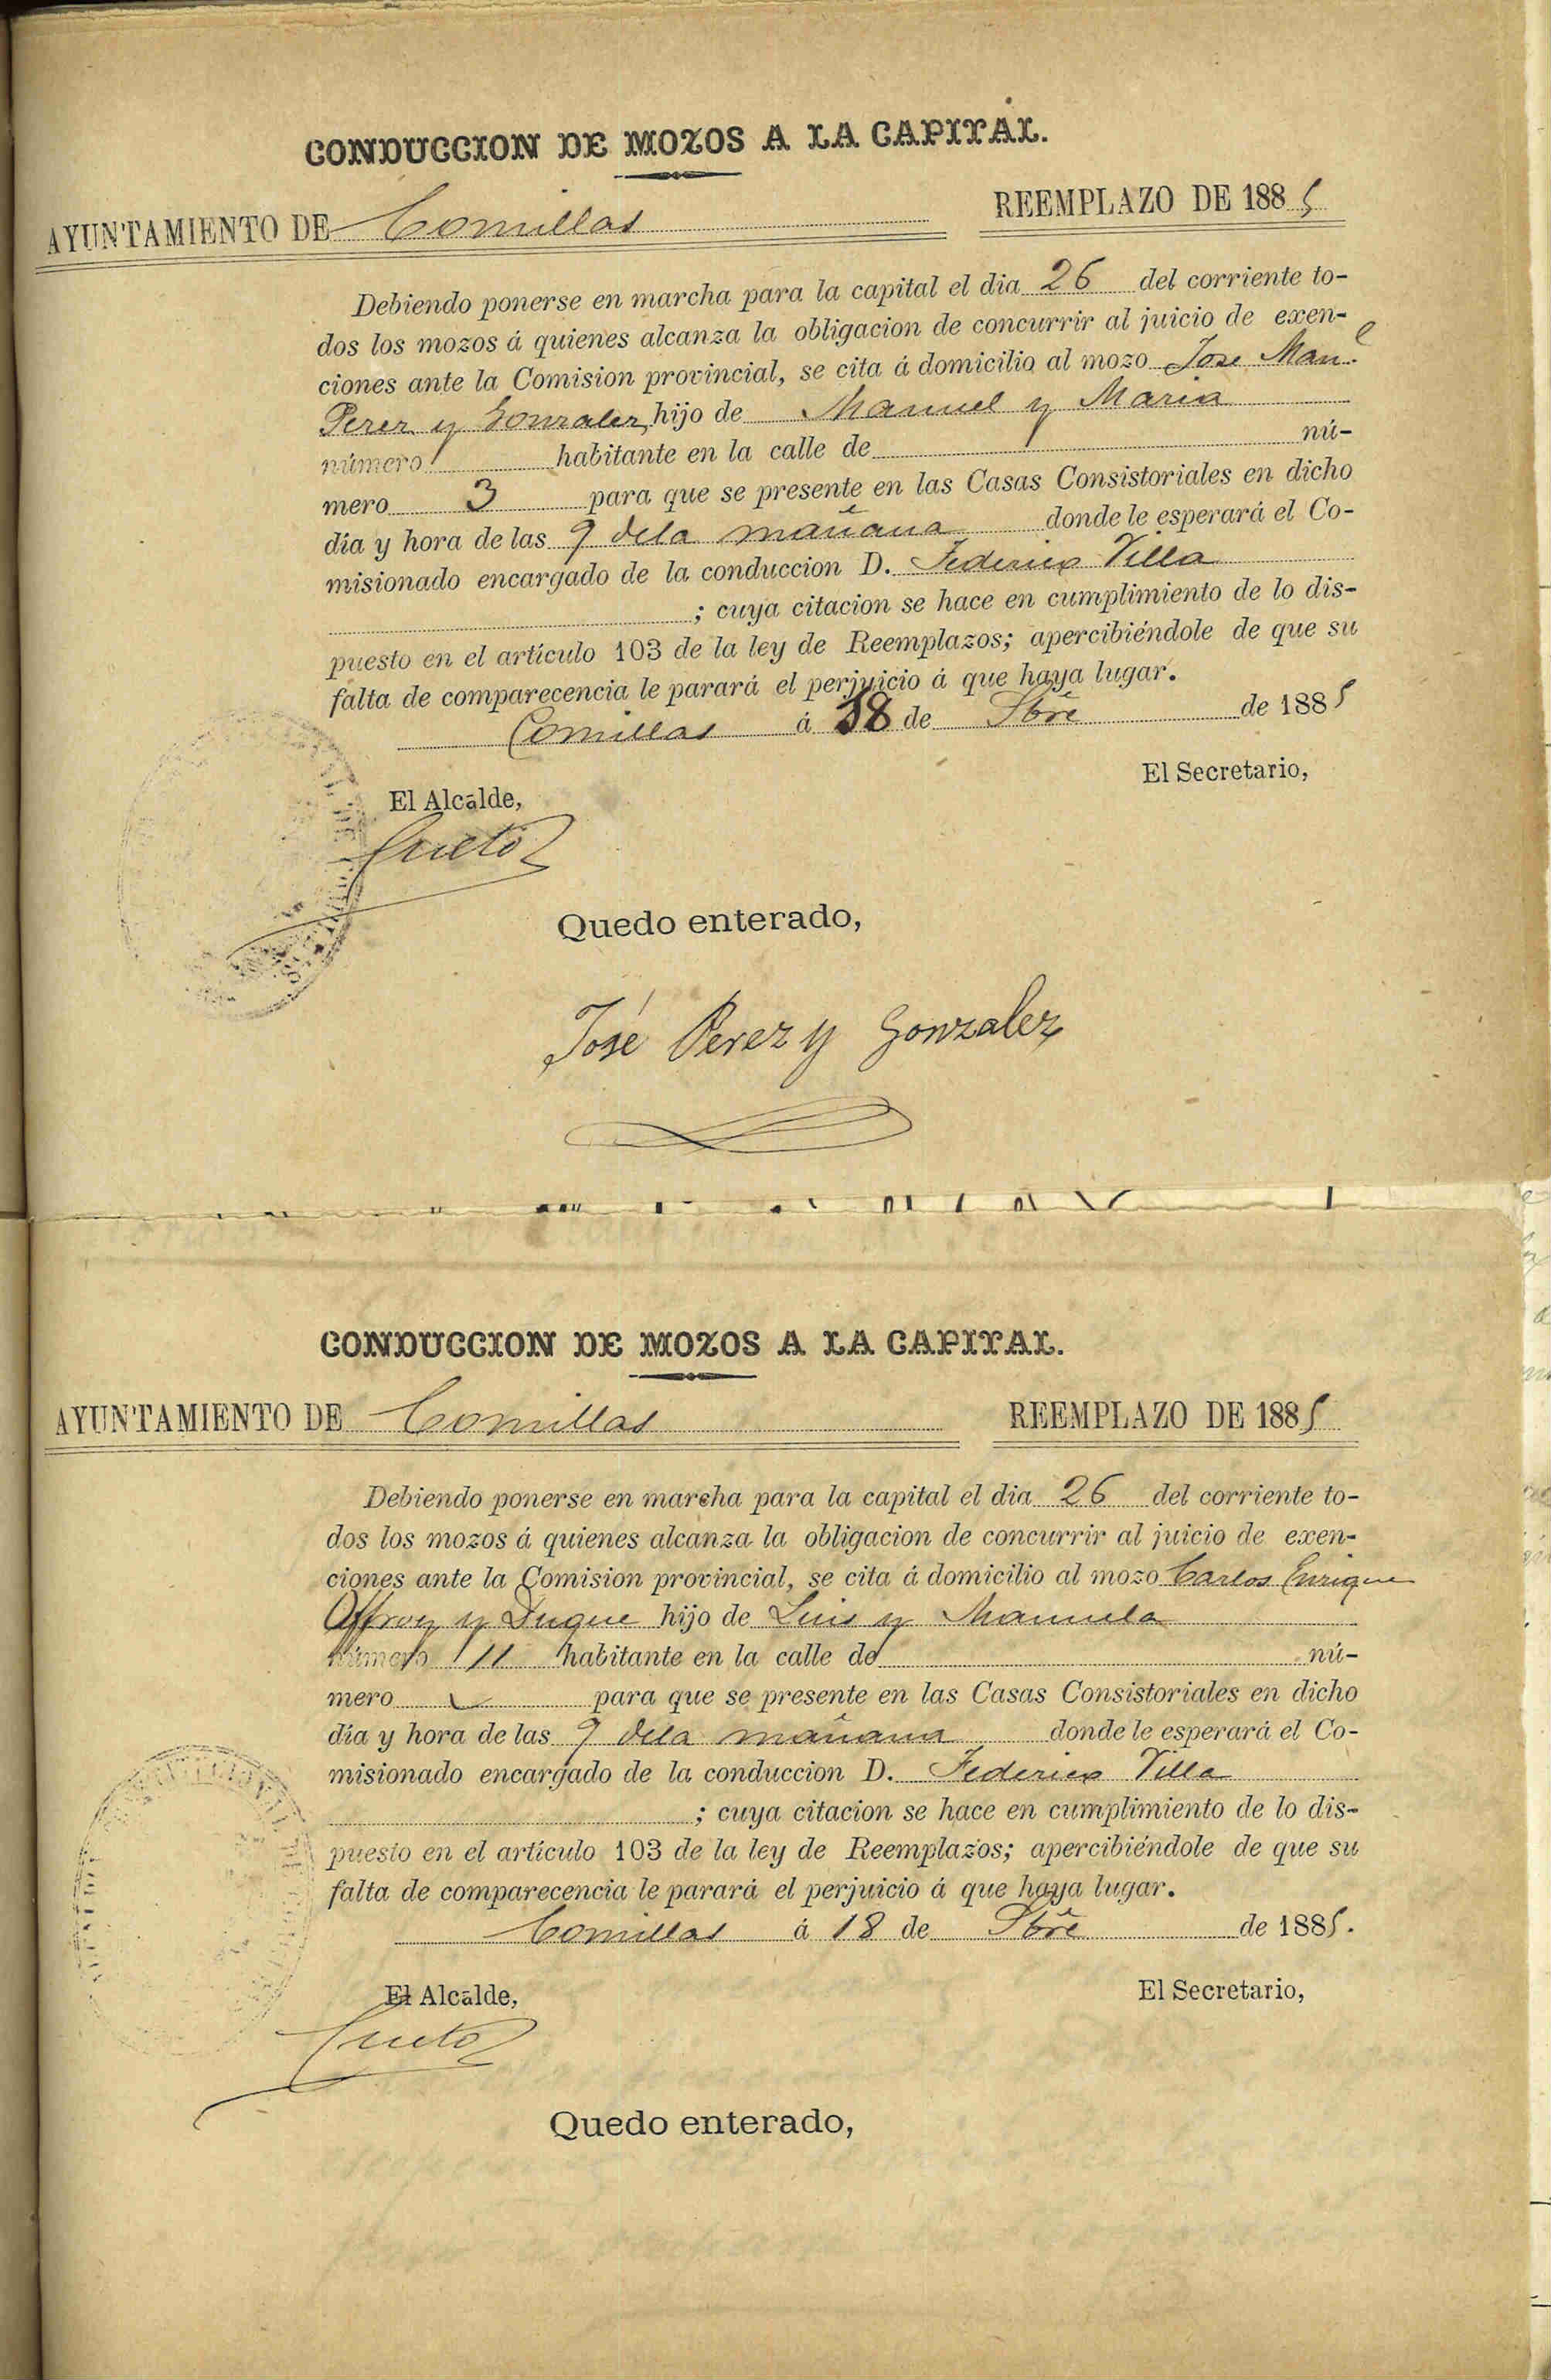 CONDUCCION DE MOZOS A LA CAPITAL.
AYUNTAMIENTO DE Comillas REEMPLAZO DE 1885
Debiendo ponerse en marcha para la capital el dia 26 del corriente to-
dos los mozos á quienes alcanza la obligacion de concurrir al juicio de exen-
ciones ante la Comision provincial, se cita á domicilio al mozo Jose Manl
Perez y Gonzalez hijo de Manuel y Maria
número habitante en la calle de nú-
mero 3 para que se presente en las Casas Consistoriales en dicho
día y hora de las 9 dela mañana donde le esperará el Co-
misionado encargado de la conduccion D. Federico Villa
; cuya citacion se hace en cumplimiento de lo dis-
puesto en el artículo 103 de la ley de Reemplazos; apercibiéndole de que su
falta de comparecencia le parará el perjuicio á que haya lugar.
Comillas á 18 de Sbre de 1885
El Secretario,
El Alcalde,
Cueto
Quedo enterado,
José Perez y Gonzalez
CONDUCCION DE MOZOS A LA CAPITAL.
AYUNTAMIENTO DE Comillas REEMPLAZO DE 1885
Debiendo ponerse en marcha para la capital el dia 26 del corriente to-
dos los mozos á quienes alcanza la obligacion de concurrir al juicio de exen-
ciones ante la Comision provincial, se cita á domicilio al mozo Carlos Enrique
y Duque hijo de Luis y Manuela
número 11 habitante en la calle de nú-
mero para que se presente en las Casas Consistoriales en dicho
día y hora de las 9 dela mañana donde le esperará el Co-
misionado encargado de la conduccion D. Federico Villa
; cuya citacion se hace en cumplimiento de lo dis-
puesto en el artículo 103 de la ley de Reemplazos; apercibiéndole de que su
falta de comparecencia le parará el perjuicio á que haya lugar.
Comillas á 18 de Sbre de 1885.
El Alcalde, El Secretario,
Cueto
Quedo enterado,